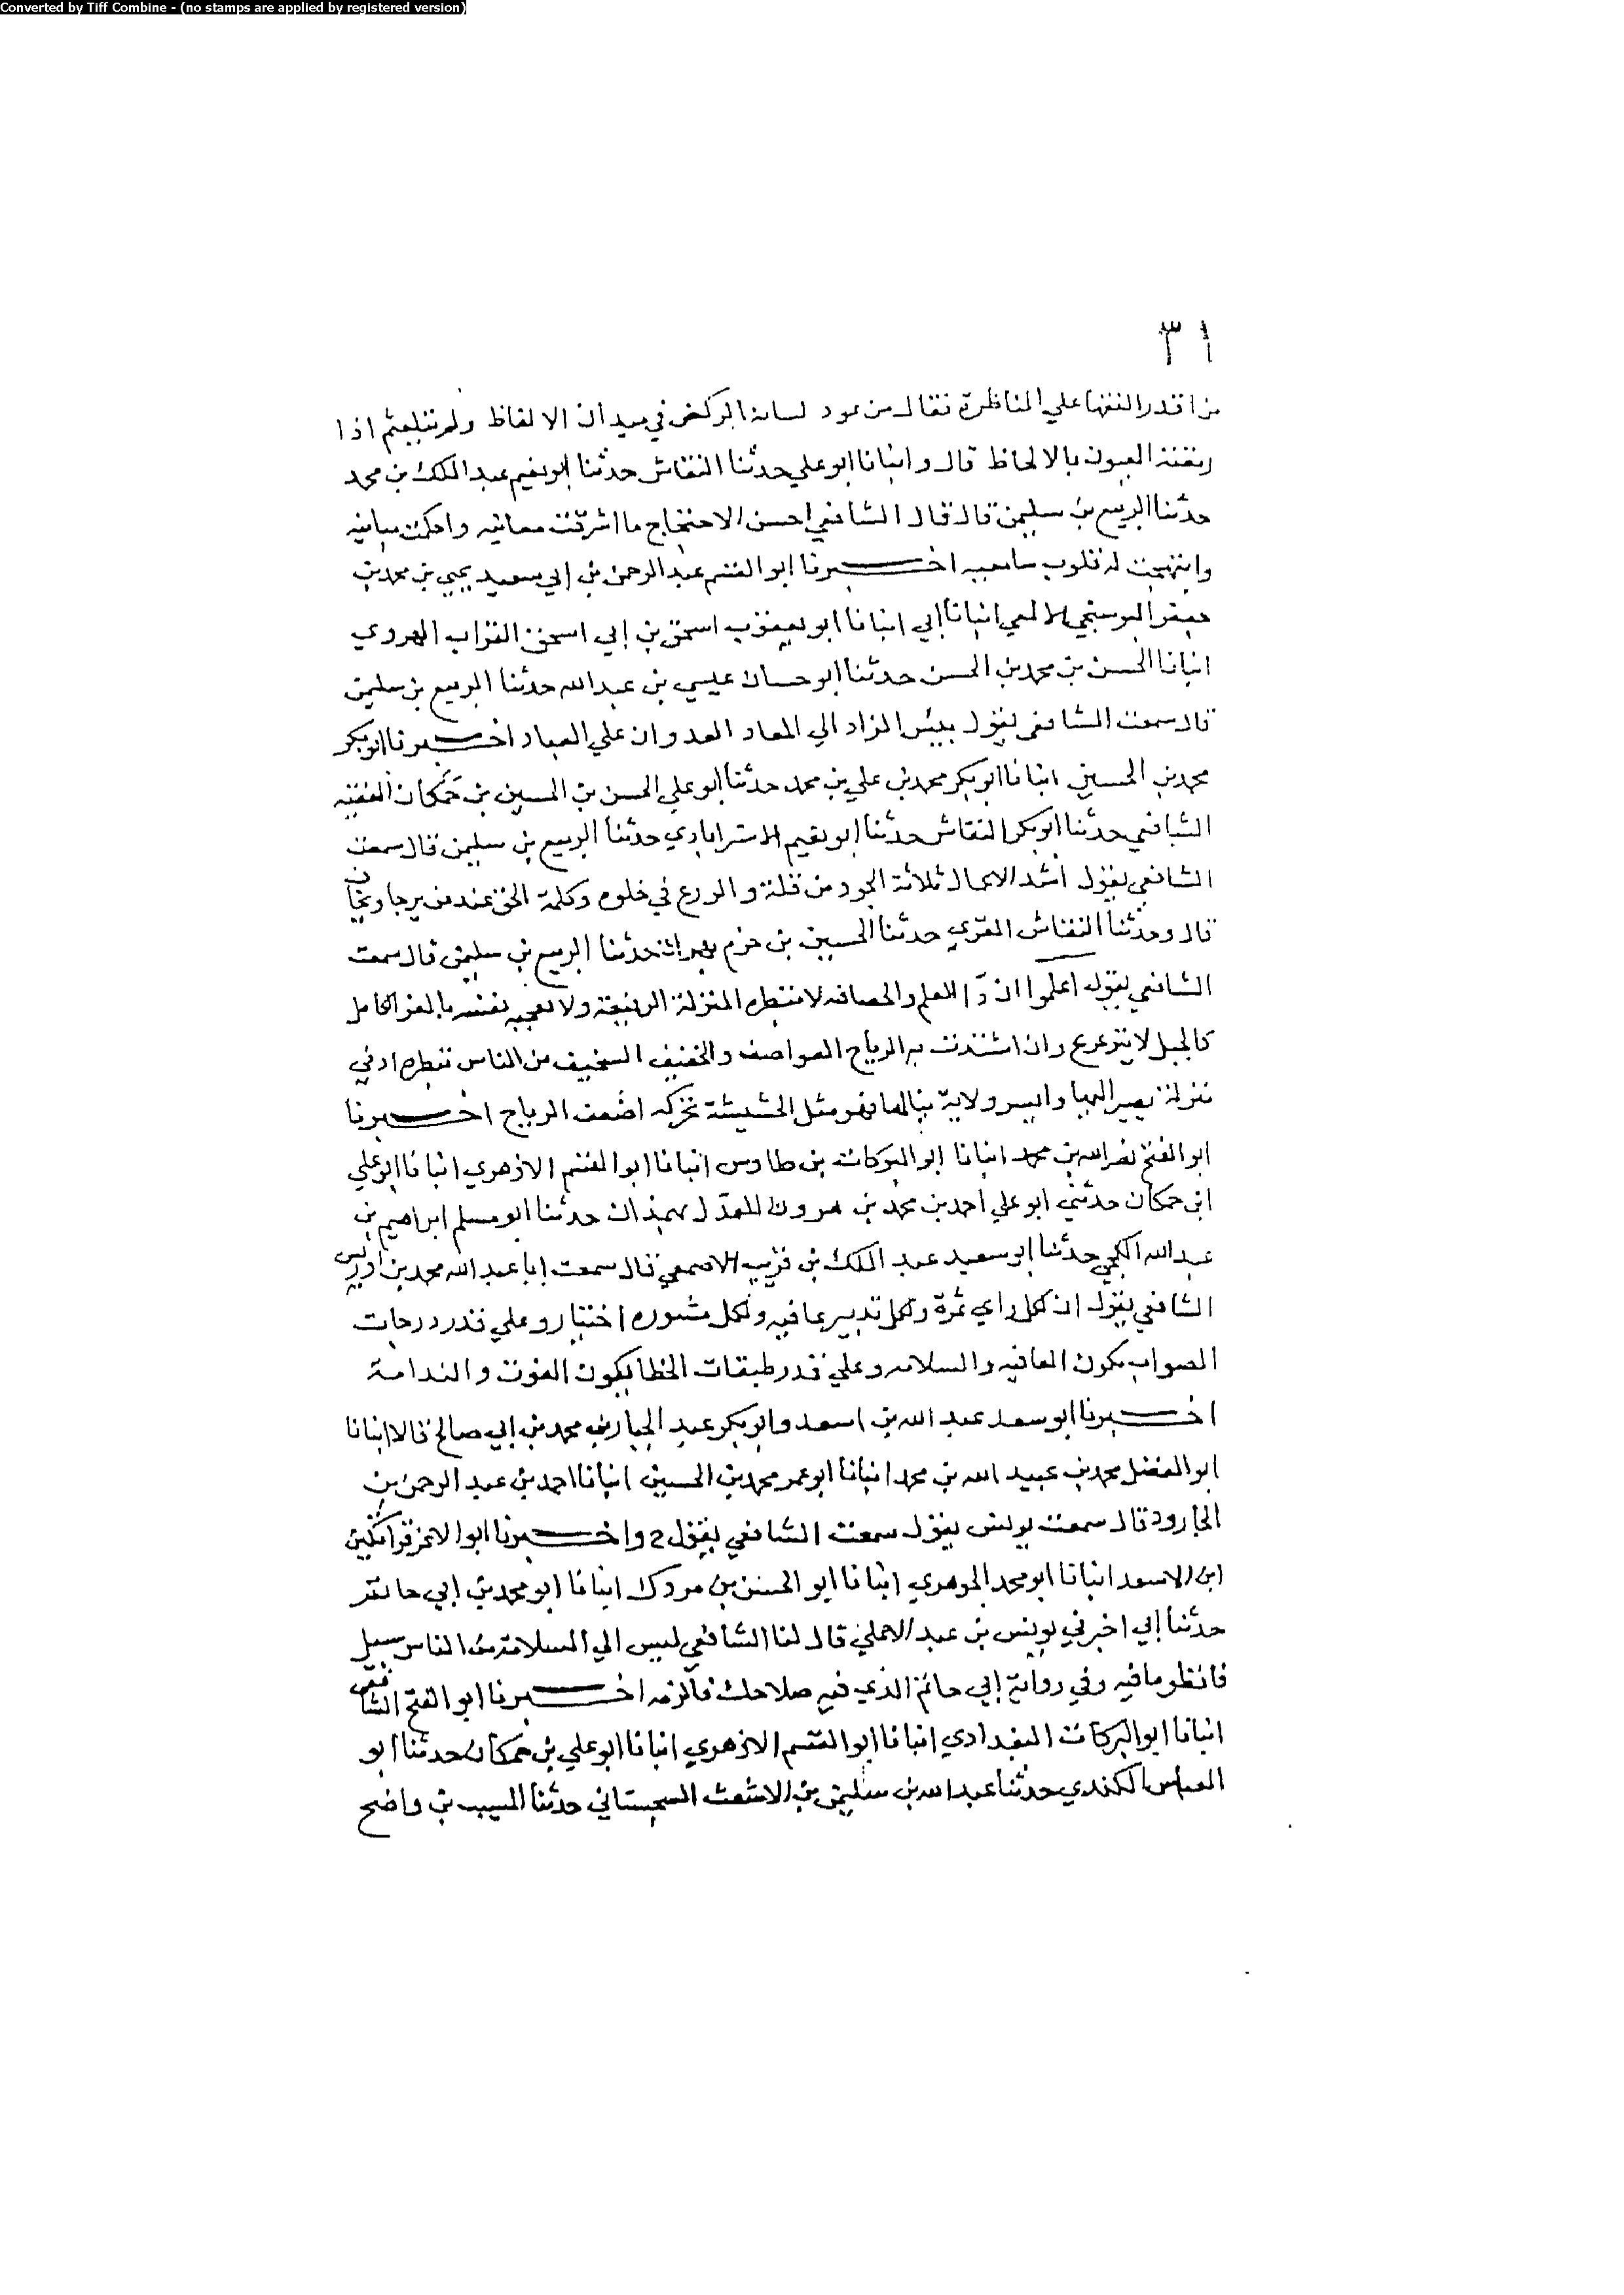 Converted by Tiff Combine - (no stamps are applied by registered version)
٣١
من اقدر الفقها علي المناظرة فقال من عود لسانه الركض في ميدان الالفاظ ولم يتلعثم اذا
رمقته العيون بالالحاظ قال وانبانا ابو علي حدثنا النقاش حدثنا ابو نعيم عبد الملك بن محمد
حدثنا الربيع بن سليمن قال قال الشافعي احسن الاحتجاج ما اشرقت معانيه واحكمت مبانيه
وابتهجت له قلوب سامعيه اخبرنا ابو القسم عبد الرحمن بن ابي سعيد يحيي بن محمد بن
جعفر البوسنجي الالمعي انبانا ابي انبانا ابو يعقوب اسحق بن ابي اسحق القراب الهروي
انبانا الحسن بن محمد بن الحسن حدثنا ابو حسان عيسي بن عبد الله حدثنا الربيع بن سليمن
قال سمعت الشافعي يقول بيئس الزاد الي المعاد العدوان علي العباد اخبرنا ابو بكر
محمد بن الحسين انبانا ابو بكر محمد بن علي بن محمد حدثنا ابو علي الحسن بن الحسين بن حمكان الفقيه
الشافعي حدثنا ابو بكر النقاش حدثنا ابو نعيم الاستراباذي حدثنا الربيع بن سليمن قال سمعت
الشافعي يقول اشد الاعمال ثلاثة الجود من قلة والورع في خلوه وكلمة الحق عند من يرجا ويخاف
قال وحدثنا النقاش المقري حدثنا الحسين بن خرم بهراة حدثنا الربيع بن سليمن قال سمعت
الشافعي يقول اعلموا ان ذا العلم والحصافه لا تبطره المنزلة الرفيعة ولا تعجبه نفسه بالعز الكامل
كالجبل لا يتزعزع وان اشتدت به الرياح العواصف والخفيف السخيف من الناس تبطره ادني
منزلة يصير اليها وايسر ولاية ينالها فهو مثل الحشيشة تحركه اضعف الرياح اخبرنا
ابو الفتح نصر الله بن محمد انبانا ابو البركات بن طاوس انبانا ابو القسم الازهري انبانا ابو علي
ابن حمكان حدثني ابو علي احمد بن محمد بن هرون المعدل بهمذان حدثنا ابو مسلم ابراهيم بن
عبد الله الكجي حدثنا ابو سعيد عبد الملك بن قريب الاصمعي قال سمعت ابا عبد الله محمد بن ادريس
الشافعي يقول ان لكل راي ثمرة ولكل تدبير عاقبه ولكل مشوره اختيار وعلي قدر درجات
الصواب تكون العافيه والسلامه وعلي قدر طبقات الخطا يكون الفوت والندامة
اخبرنا ابو سعد عبد الله بن اسعد وابو بكر عبد الجبار بن محمد بن ابي صالح قالا انبانا
ابو الفضل محمد بن عبيد الله بن محمد انبانا ابو عمر محمد بن الحسين انبانا احمد بن عبد الرحمن بن
الجارود قال سمعت يونس يقول سمعت الشافعي يقول ح واخبرنا ابو الاعز قراتكين
ابن الاسعد انبانا ابو محمد الجوهري انبانا ابو الحسن بن مردك انبانا ابو محمد بن ابي حاتم
حدثنا ابي اخبرني يونس بن عبد الاعلي قال لنا الشافعي ليس الي السلامة من الناس سبيل
فانظر ما فيه وفي رواية ابي حاتم الذي فيه صلاحك فالزمه اخبرنا ابو الفتح الشافعي
انبانا ابو البركات البغدادي انبانا ابو القسم الازهري انبانا ابو علي بن حمكان حدثنا ابو
العباس الكندي حدثنا عبد الله بن سليمن بن الاشعث السجستاني حدثنا المسيب بن واضح